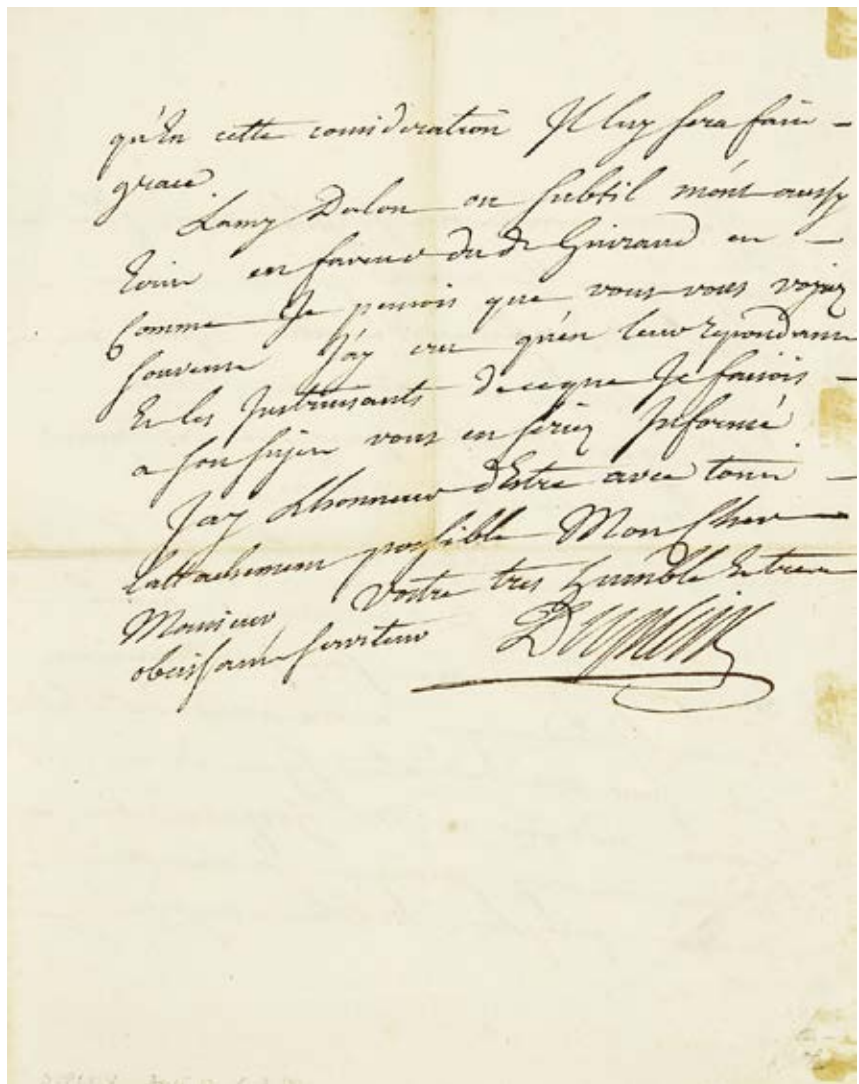 qu'En cette consideration Il luy sera faire
grace
Lamy Dalon ou subtil m'ont aussy
Ecrit en faveur du dt Guiraud en
Comme Je pensois que vous vous voyez
souvent J'ay cru qu'en leur repondant
Et les Instruisants de ce que Je faisois
a son sujet vous en seriez Informé
J'ay Lhonneur d'Estre avec tout
L'attachement possible Mon Cher
Monsieur Vostre tres humble Et tres
obeissant serviteur Dupleix